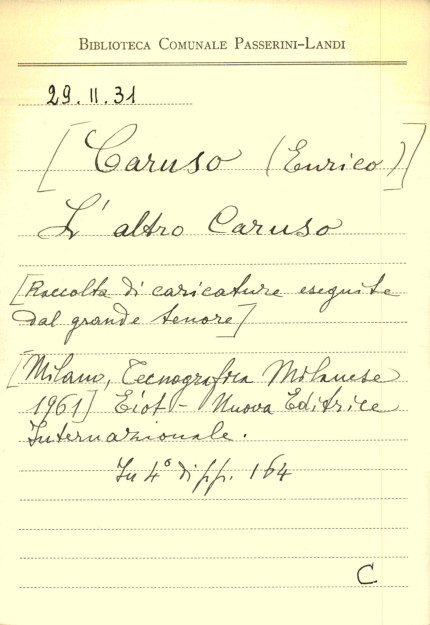 BIBLIOTECA COMUNALE PASSERINI-LANDI
29.II.31
[Caruso (Enrico)]
L'altro Caruso
[Raccolta di caricature eseguite
dal grande tenore]
[Milano, Tecnografica Milanese
1961] Eiot - Nuova Editrice
Internazionale.
In 4° di pp. 164
C